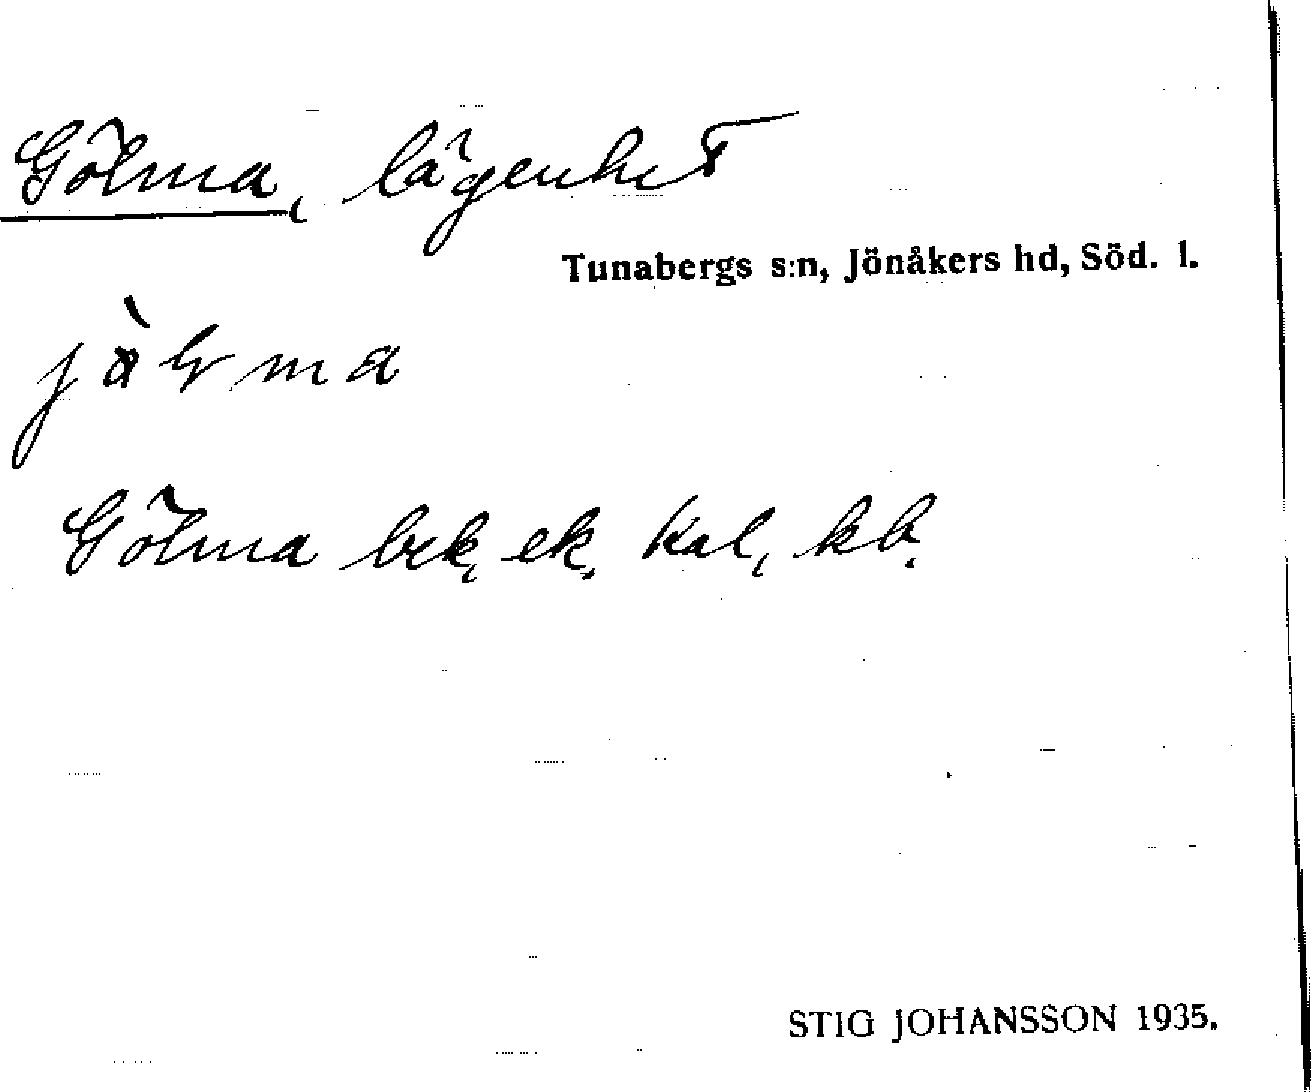 Gölma, lägenhet
Tunabergs s:n, Jönåkers hd, Söd. l.
Gölma bek, ek, Kal, kb.
STIG JOHANSSON 1935.